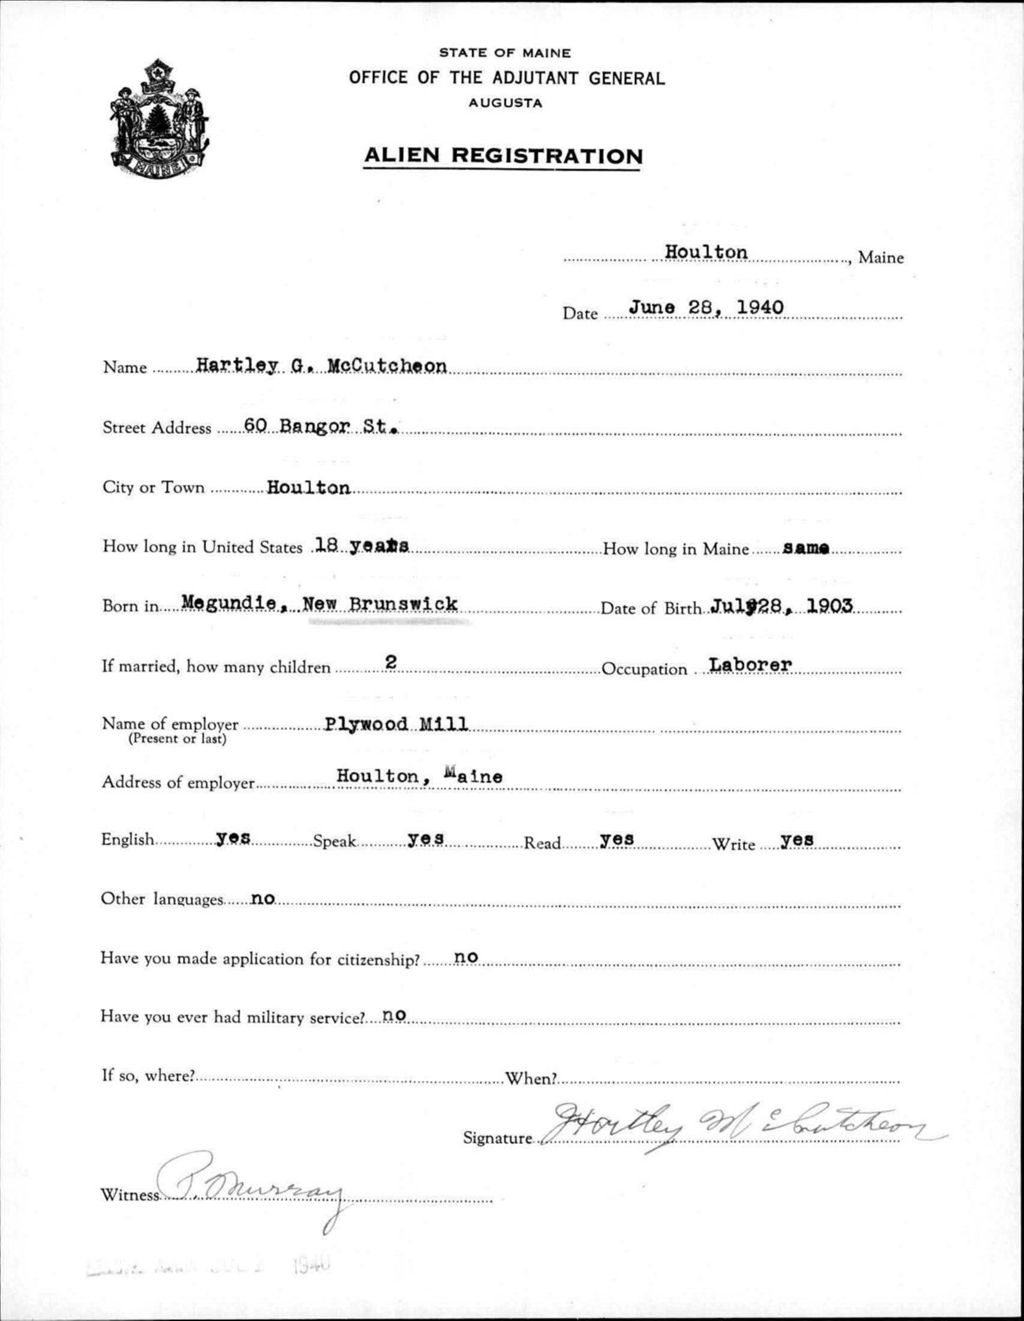 STATE OF MAINE
OFFICE OF THE ADJUTANT GENERAL
AUGUSTA
ALIEN REGISTRATION
MAINE
Houlton, Maine
Date June 28, 1940
Name Hartley G. McCutcheon
Street Address 60 Bangor St.
City or Town Houlton
How long in United States 18 years How long in Maine same
Born in Megundie, New Brunswick Date of Birth July 28, 1903
If married, how many children 2 Occupation Laborer
Name of employer Plywood Mill
(Present or last)
Address of employer Houlton, Maine
English yes Speak yes Read yes Write yes
Other languages no
Have you made application for citizenship? no
Have you ever had military service? no
If so, where? When?
Signature Hartley McCutcheon
Witness P. Murray
1940